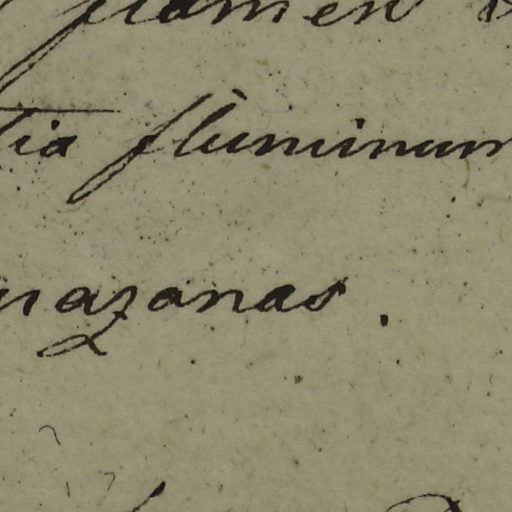 flumen
tia flùminum
mazonas.